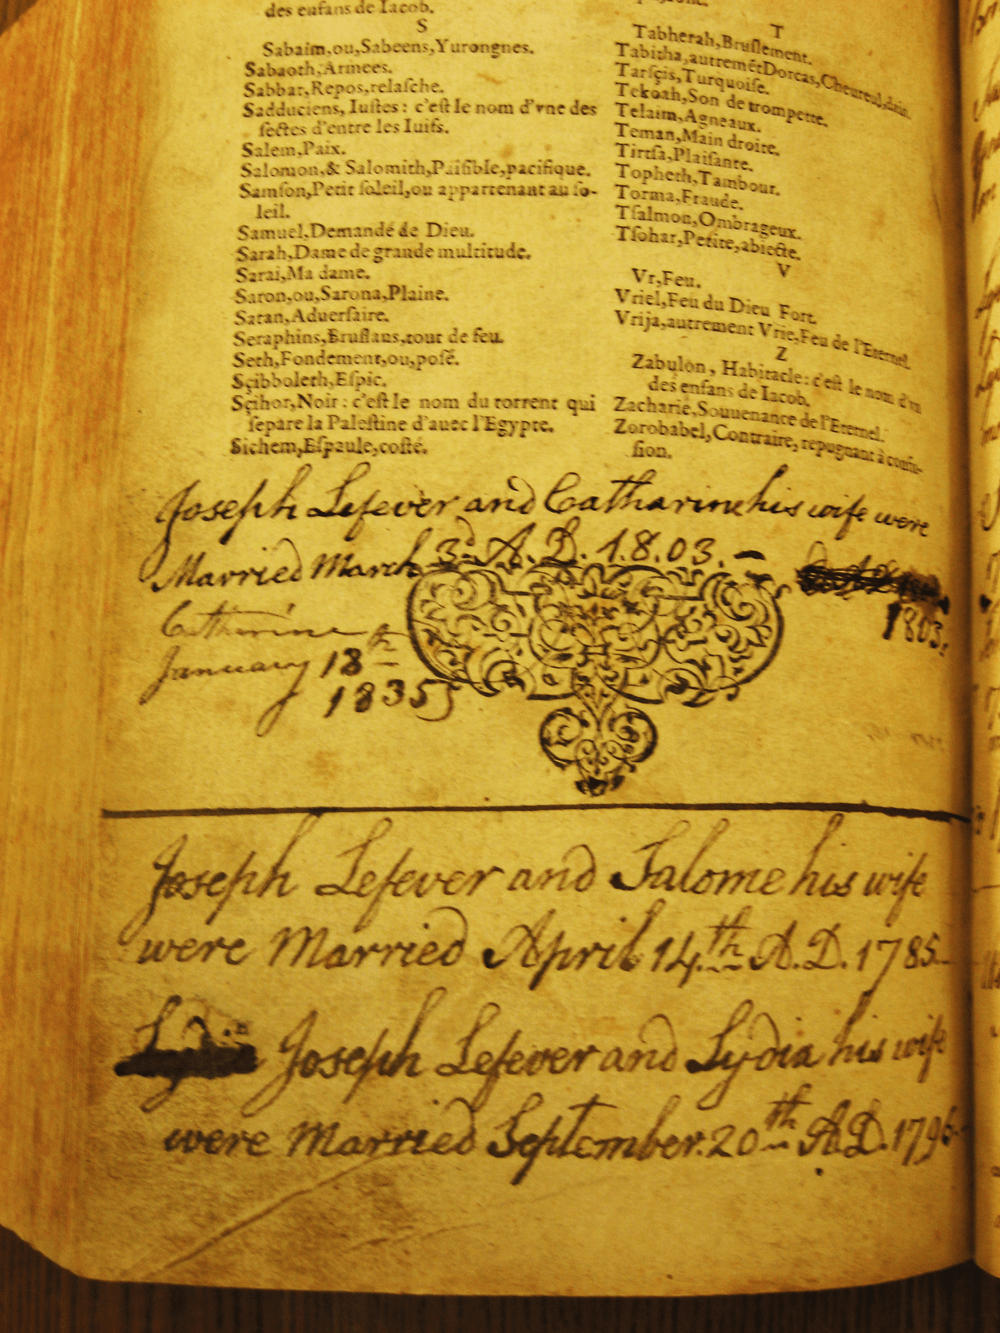 des enfans de Iacob.
S
Sabaim,ou,Sabeens,Yurongnes.
Sabaoth,Armees.
Sabbat,Repos,relasche.
Sadduciens, Iustes : c'est le nom d'vne des
sectes d'entre les Iuifs.
Salem,Paix.
Salomon,& Salomith,Paisible,pacifique.
Samson,Petit soleil,ou appartenant au so-
leil.
Samuel,Demandé de Dieu.
Sarah,Dame de grande multitude.
Sarai,Ma dame.
Saron,ou,Sarona,Plaine.
Satan,Aduersaire.
Seraphins,Bruslans,tout de feu.
Seth,Fondement,ou,posé.
Sçibboleth,Espic.
Sçihor,Noir : c'est le nom du torrent qui
separe la Palestine d'auec l'Egypte.
Sichem,Espaule,costé.
T
Tabherah,Bruslement.
Tabitha,autremēt Dorcas,Cheureul,dain.
Tarsçis,Turquoise.
Tekoah,Son de trompette.
Telaim,Agneaux.
Teman,Main droite.
Tirtsa,Plaisante.
Topheth,Tambour.
Torma,Fraude.
Tsalmon,Ombrageux.
Tsohar,Petite,abiecte.
V
Vr,Feu.
Vriel,Feu du Dieu Fort.
Vrija,autrement Vrie,Feu de l'Eternel.
Z
Zabulon, Habitacle : c'est le nom d'vn
des enfans de Iacob.
Zacharie,Souuenance de l'Eternel.
Zorobabel,Contraire, repugnant à confu-
sion.
Joseph Lefever and Catharine his wife were
Married March 3d A.D. 1.8.03.
1803.
Catherine
January 18th
1835
Joseph Lefever and Salome his wife
were Married April 14.th A.D. 1785
Lydia Joseph Lefever and Lydia his wife
were Married September 20th A.D. 1796